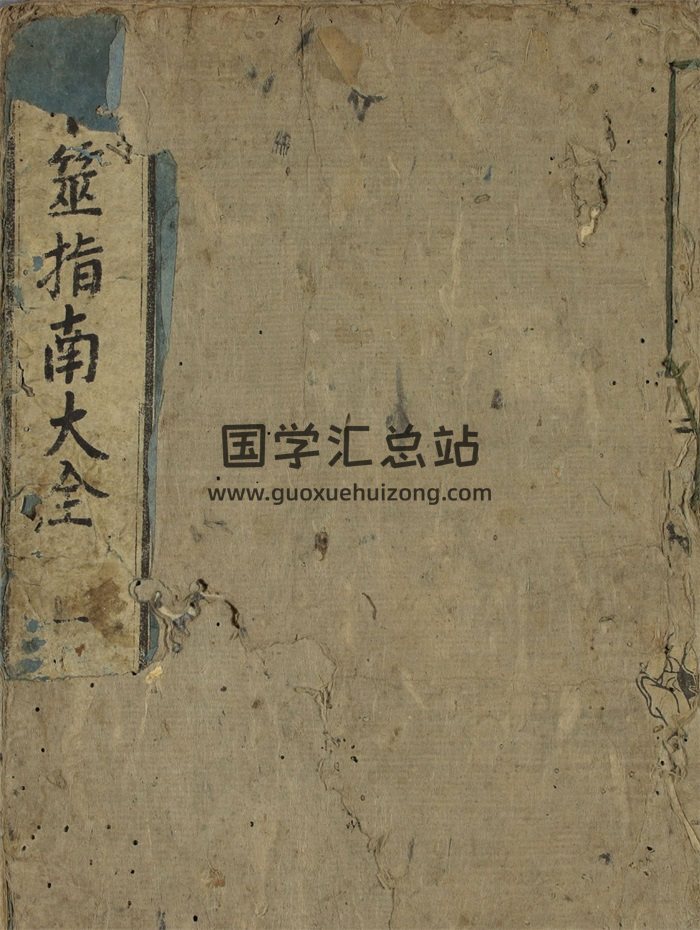 筮指南大全
一
国学汇总站
www.guoxuehuizong.com